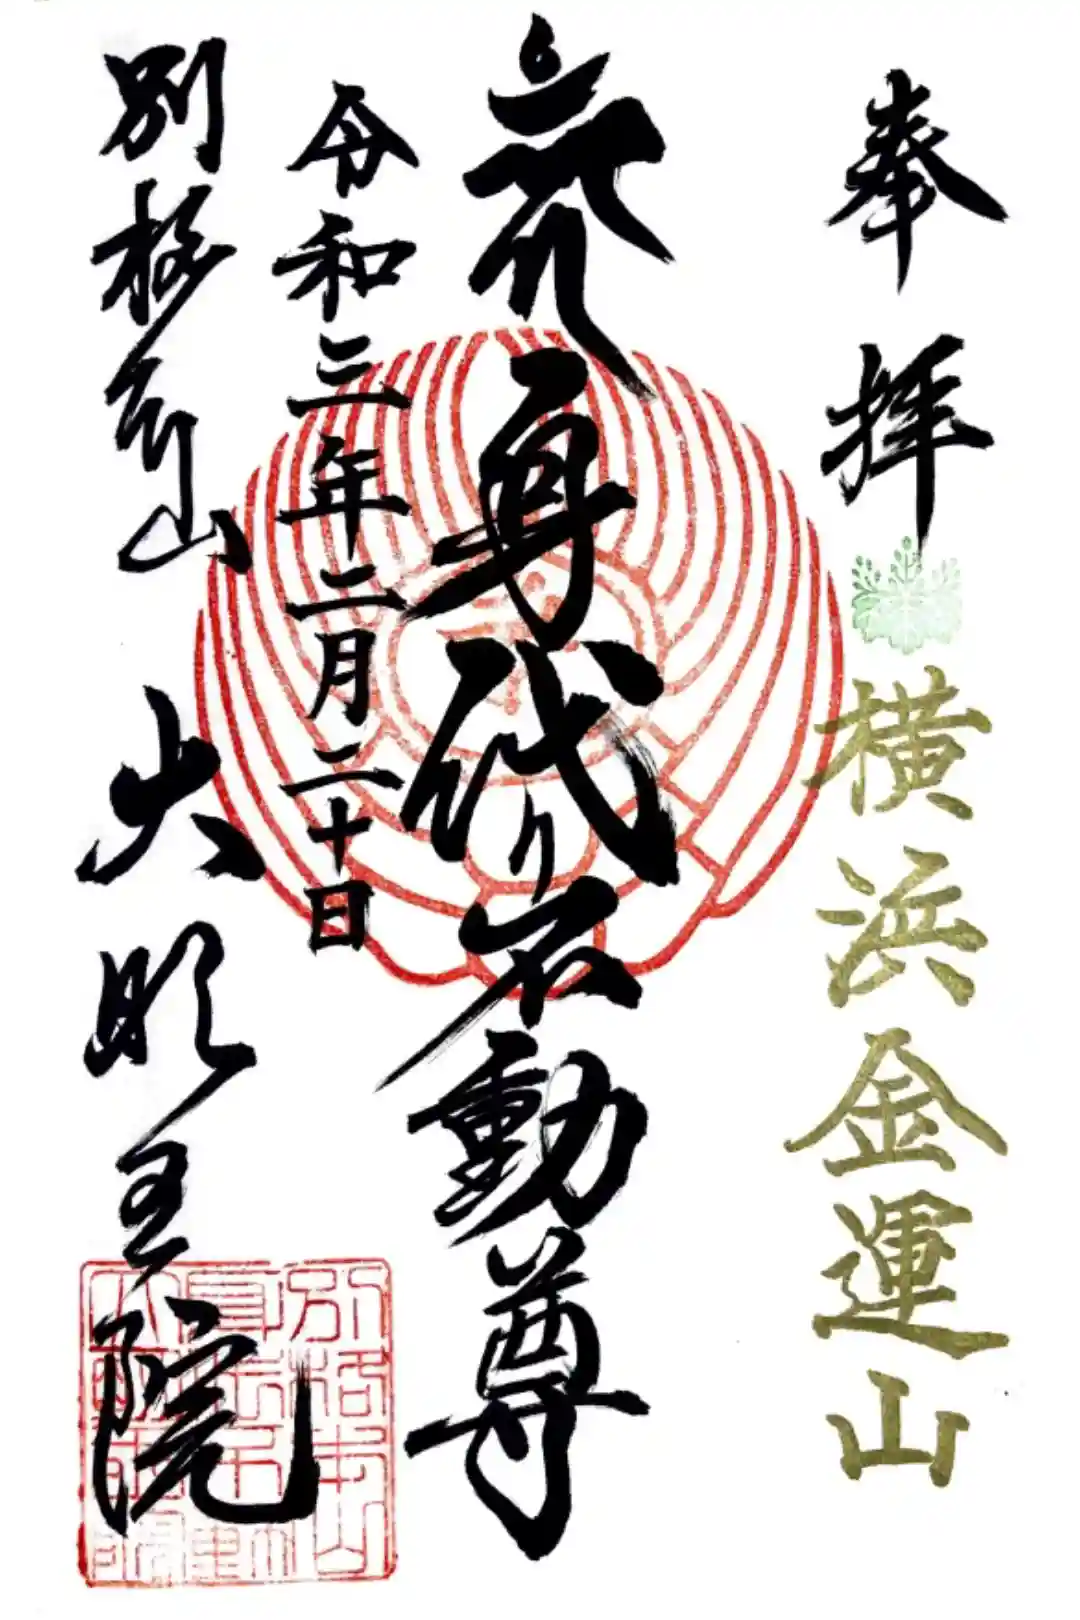 奉拝
横浜金運山
身代り不動尊
令和三年二月二十日
別格本山 大明王院